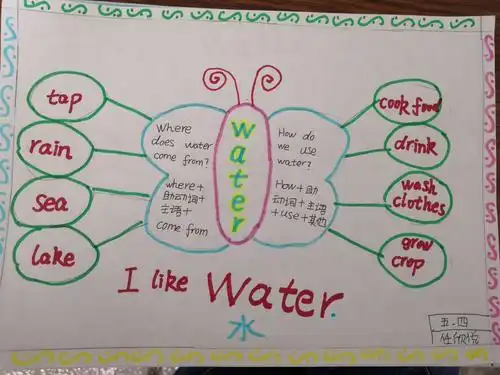 tap
rain
sea
lake
Where
does water
come from?
where+
助动词+
主语+
come from
water
How do
we use
water?
How+助
动词+主语
+use+其他
cook food
drink
wash
clothes
grow
crop
I like Water.
水
五.四